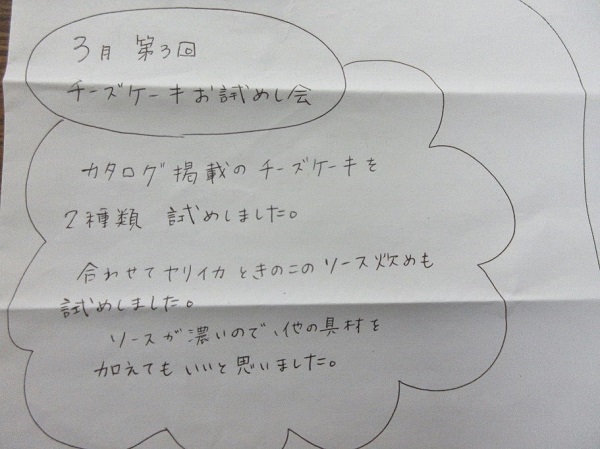 3月 第3回
チーズケーキお試めし会
カタログ掲載のチーズケーキを
2種類 試めしました。
合わせてヤリイカときのこのソース炒めも
試めしました。
ソースが濃いので、他の具材を
加えてもいいと思いました。